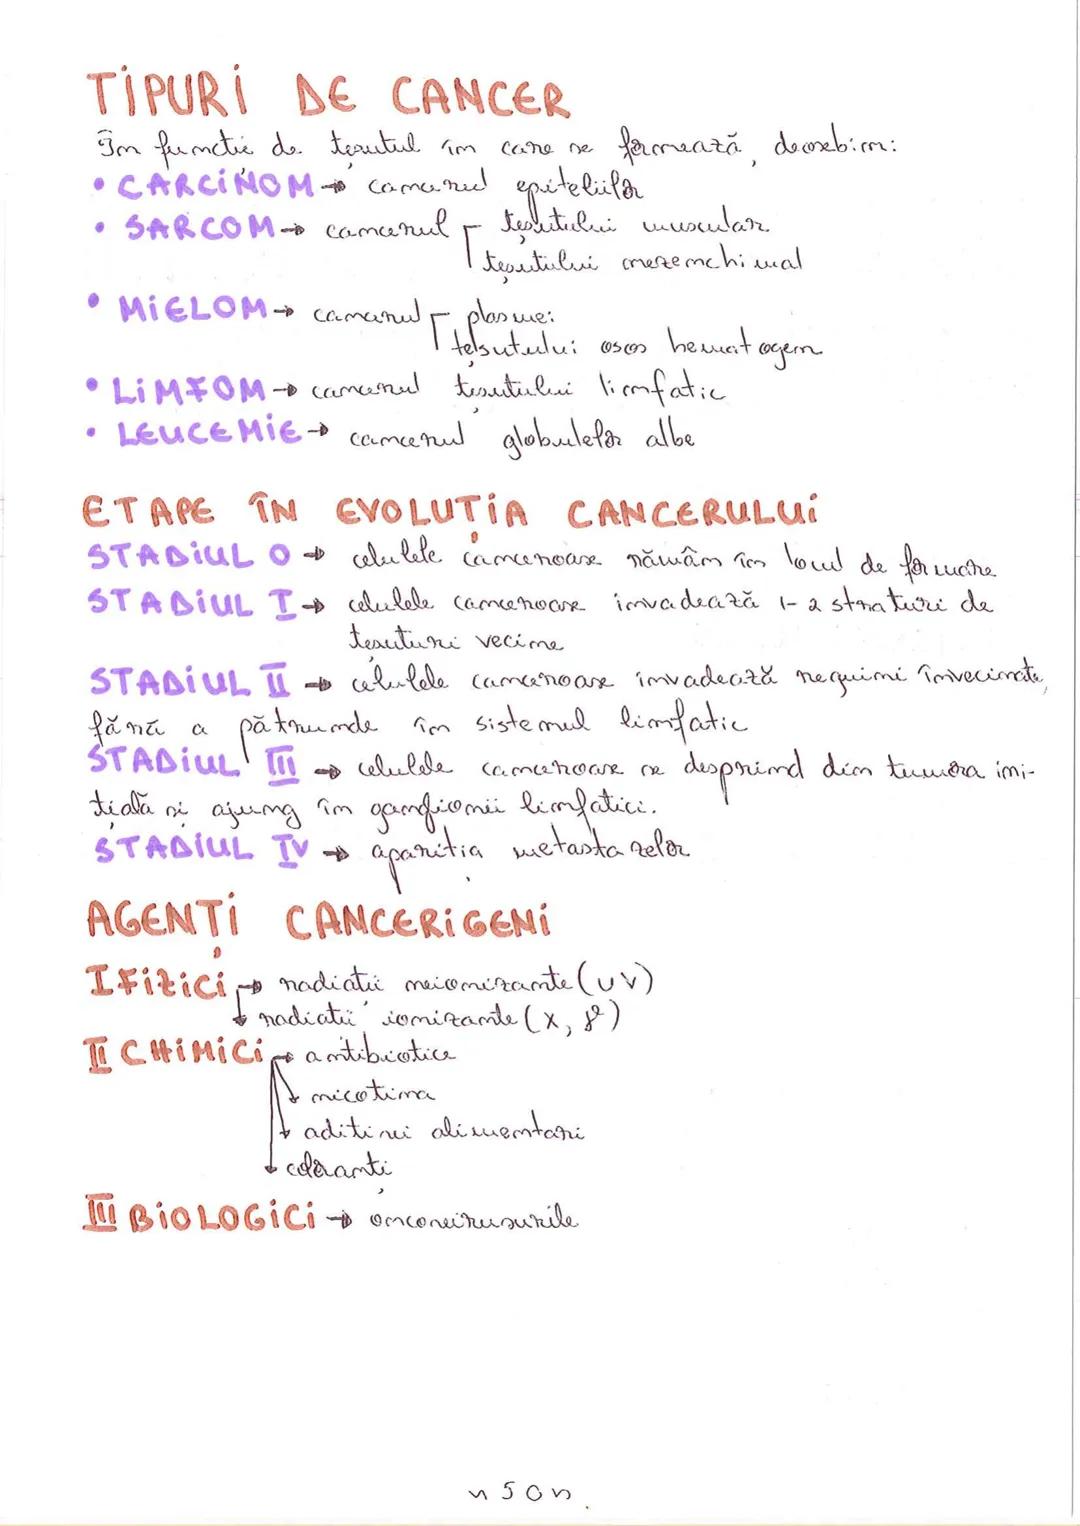 TIPURI DE CANCER
În funcție de țesutul în care se formează, deosebim:
• CARCINOM → cancerul epiteliilor
• SARCOM → cancerul țesutului muscular
țesutului mezenchimal
• MIELOM → cancerul plasmei
țelsutului osos hematogen
• LIMFOM → cancerul țesutului limfatic
• LEUCEMIE → cancerul globulelor albe
ETAPE ÎN EVOLUȚIA CANCERULUI
STADIUL 0 → celulele canceroase rămân în locul de formare
STADIUL I → celulele canceroase invadează 1-2 straturi de
țesuturi vecine
STADIUL II → celulele canceroase invadează regiuni învecinate,
fără a pătrunde în sistemul limfatic
STADIUL III → celulele canceroase se desprind din tumora ini-
țială și ajung în ganglionii limfatici.
STADIUL IV → apariția metastazelor
AGENȚI CANCERIGENI
I FIZICI → radiații neionizante (UV)
→ radiații ionizante (X, γ)
II CHIMICI → antibiotice
→ nicotina
→ aditivi alimentari
→ coloranți
III BIOLOGICI → oncovirusurile